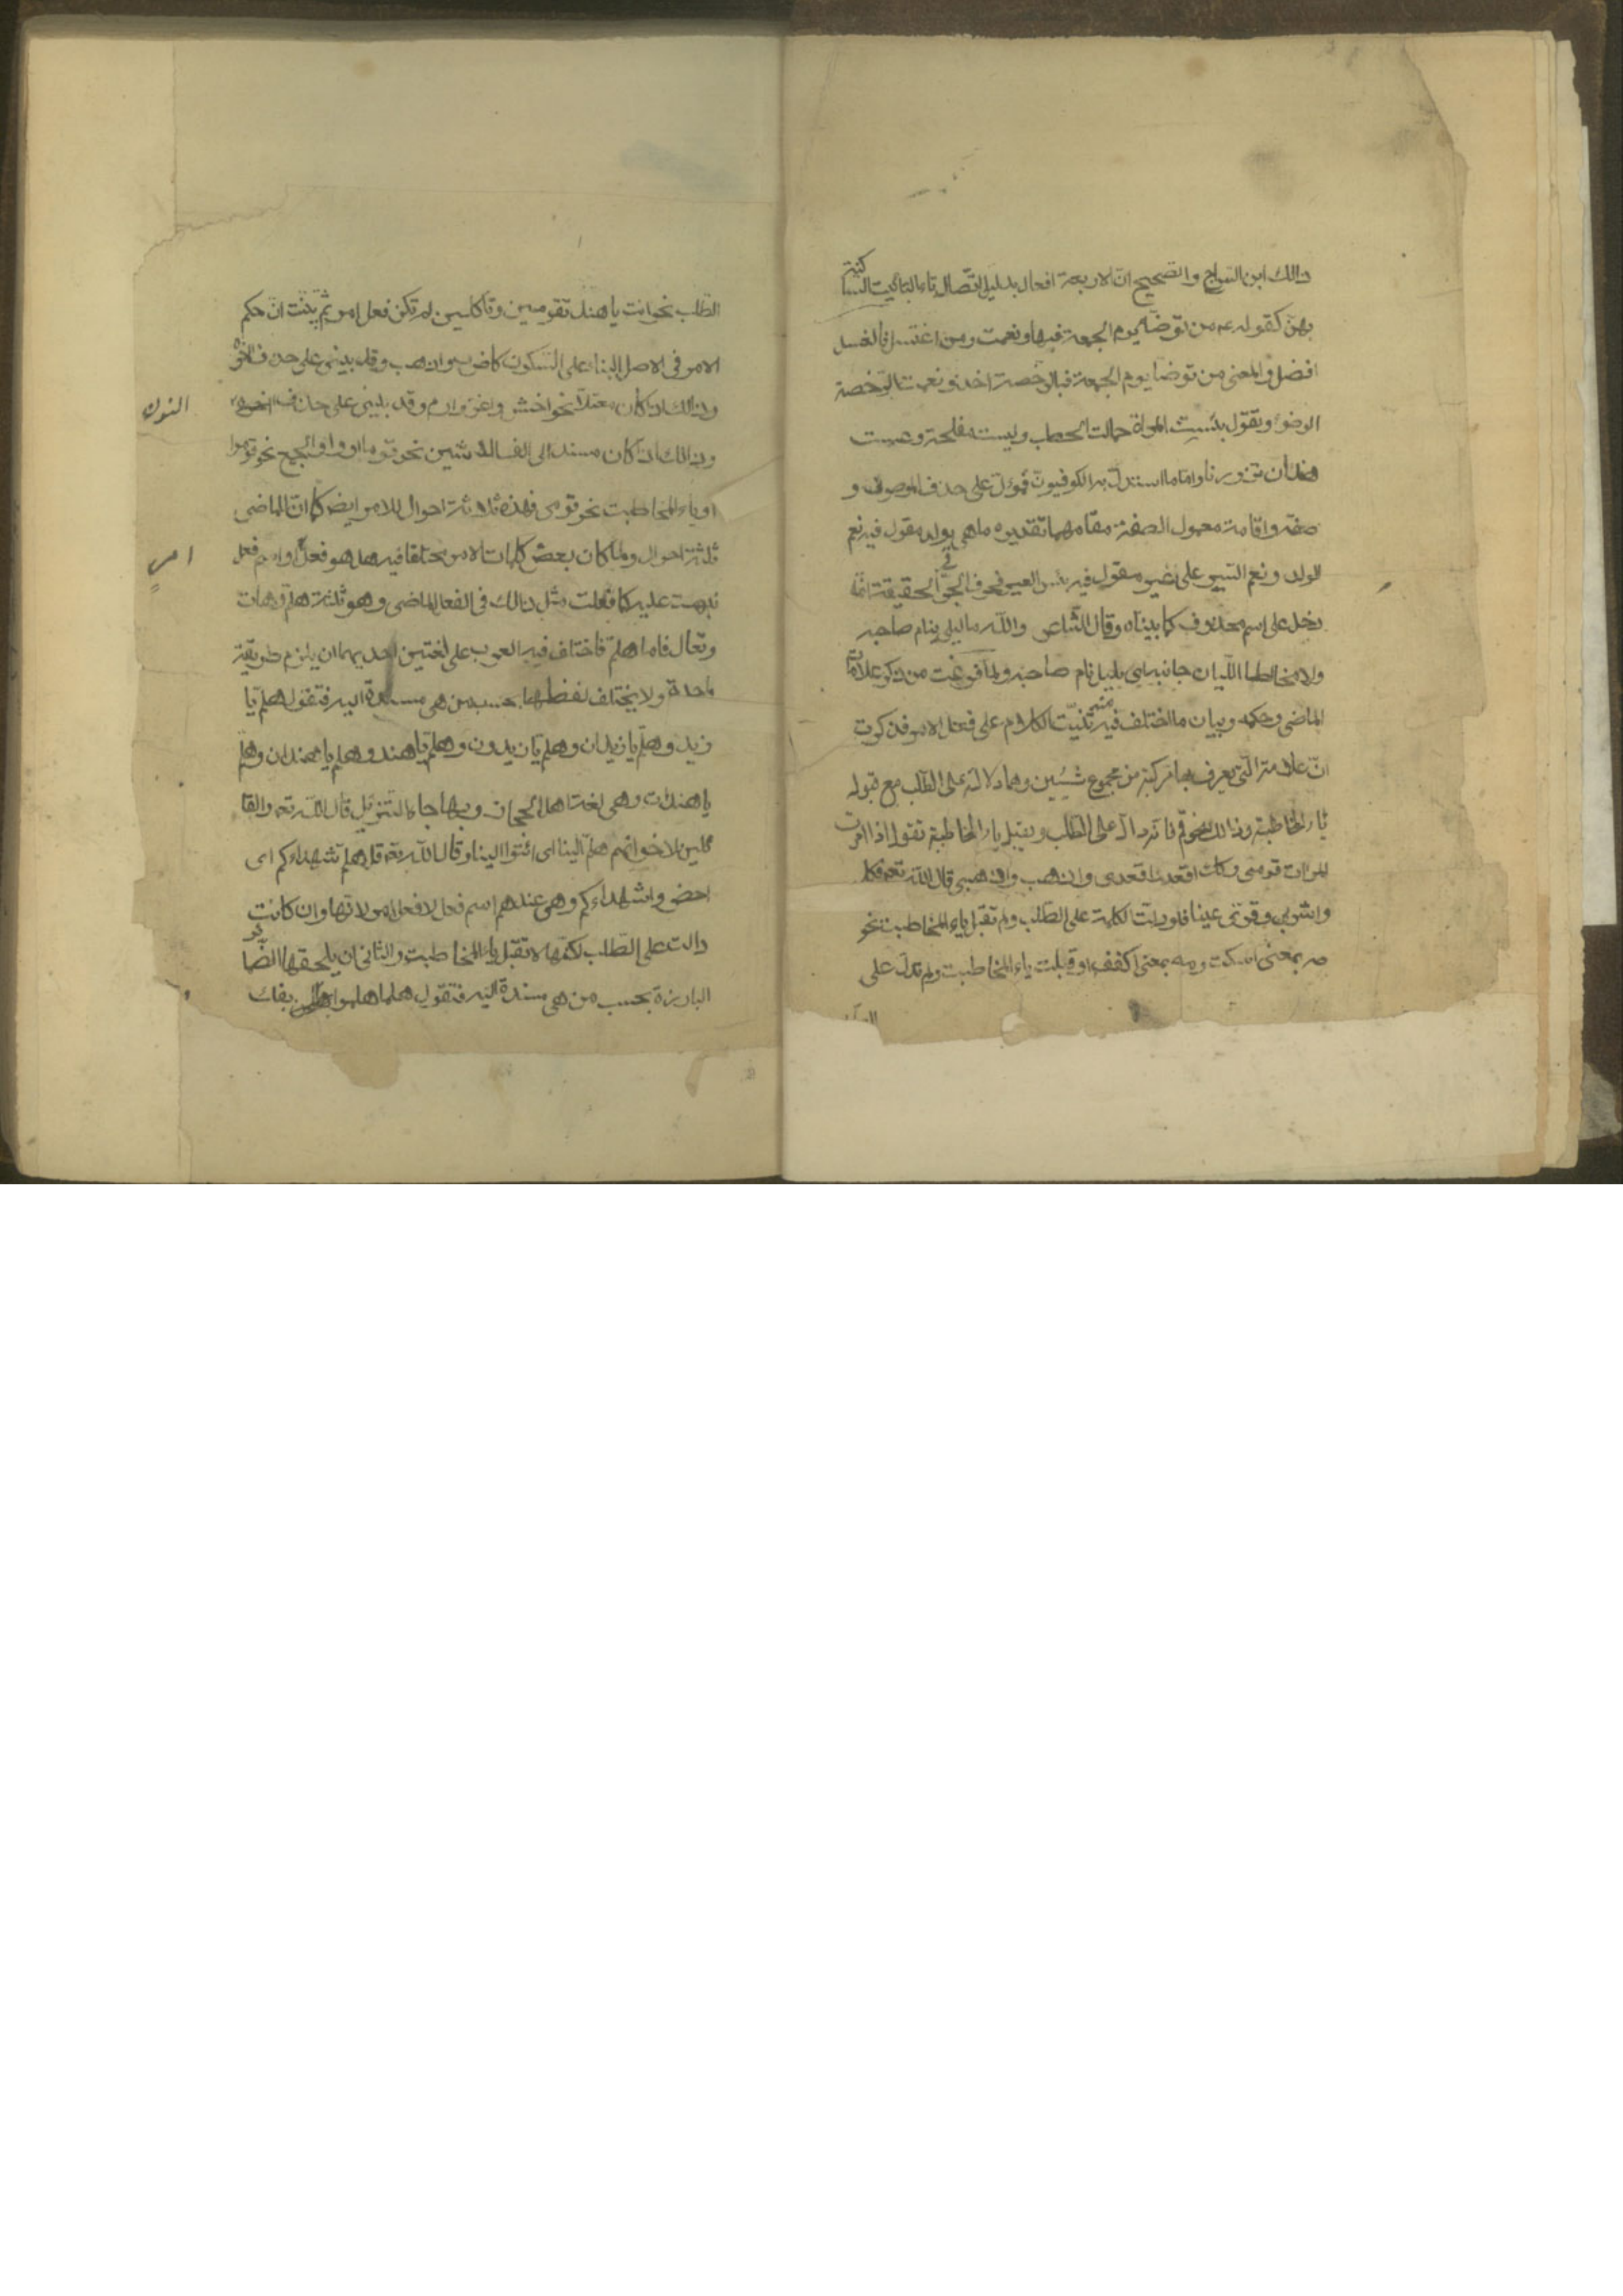 ذالك ابن السراج والصحيح ان الاربعة افعال بدليل اتصال تاء التانيث الساكنة
بهن كقوله عم من توضأ يوم الجمعة فبها ونعمت ومن اغتسل فالغسل
افضل والمعنى من توضأ يوم الجمعة فبالرخصة اخذ ونعمت الرخصة
الوضوء وتقول بئست المراة حمالت الحطب وليست مفلحة وعست
هند ان تزورنا واما ما استدل به الكوفيون فمؤل على حذف الموصوف و
صفته واقامة معمول الصفة مقامهما تقديره ما هي بولد مقول فيه نعم
الولد ونعم السير على عير مقول فيه بئس العير فحرف الجر في الحقيقة انما
دخل على اسم محذوف كما بيناه وقال الشاعر والله ما ليلى بنام صاحبه
ولا مخالط الليان جانبه اى بليل نام صاحبه ولما فرغت من ذكر علامات
الماضى وحكمه وبيان ما اختلف فيه منه ثنيت الكلام على فعل الامر فذكرت
ان علامته التى يعرف بها مركبة من مجموع شيئين وهما دلالته على الطلب مع قبوله
ياء المخاطبة وذالك نحو قم فانه دال على الطلب ويقبل ياء المخاطبة تقول اذا امرت
المرأت قومى وكذا اقعد اقعدى واذهب واذهبى قال الله تعه فكلى
واشربى وقرى عينا فلو دلت الكلمة على الطلب ولم تقبل ياء المخاطبت نحو
صه بمعنى اسكت ومه بمعنى اكفف او قبلت ياء المخاطبت ولم تدل على
الطلب نحو انت يا هند تقومين وتأكلين لم تكن فعل امر ثم بينت ان حكم
الامر فى الاصل البناء على السكون كاضرب واذهب وقد يبنى على حذف آخره
وذالك اذا كان معتلا نحو اخش واغز وارم وقد يبنى على حذف النون
وذالك اذا كان مسندا الى الف الاثنين نحو قوما او واو الجمع نحو قوموا
او ياء المخاطبت نحو قومى فهذه ثلاثة احوال للامر ايض كما ان للماضى
ثلثة احوال ولما كان بعض كلمات الامر مختلفا فيه هل هو فعل امر او اسم فعل
نبهت عليه كما فعلت مثل ذالك فى الفعل الماضى وهو ثلثة هلم وهات
وتعال فاما هلم فاختلف فيه العرب على لغتين احديهما ان يلزم طريقة
واحدة ولا يختلف لفظها بحسب من هى مسندة اليه فتقول هلم يا
زيد وهلم يا زيدان وهلم يا زيدون وهلم يا هند وهلم يا هندان وهلم
يا هندات وهى لغت اهل الحجاز وبها جاء التنزيل قال الله تعه والقا
ئلين لاخوانهم هلم الينا اى ائتوا الينا وقال الله تعه قل هلم شهداءكم اى
احضروا شهداءكم وهى عندهم اسم فعل لا فعل امر لانها وان كانت
دالت على الطلب لكنها لا تقبل ياء المخاطبت والثانى ان يلحقها الضمائر
البارزة بحسب من هى مسندة اليه فتقول هلما هلموا هلمن بفك